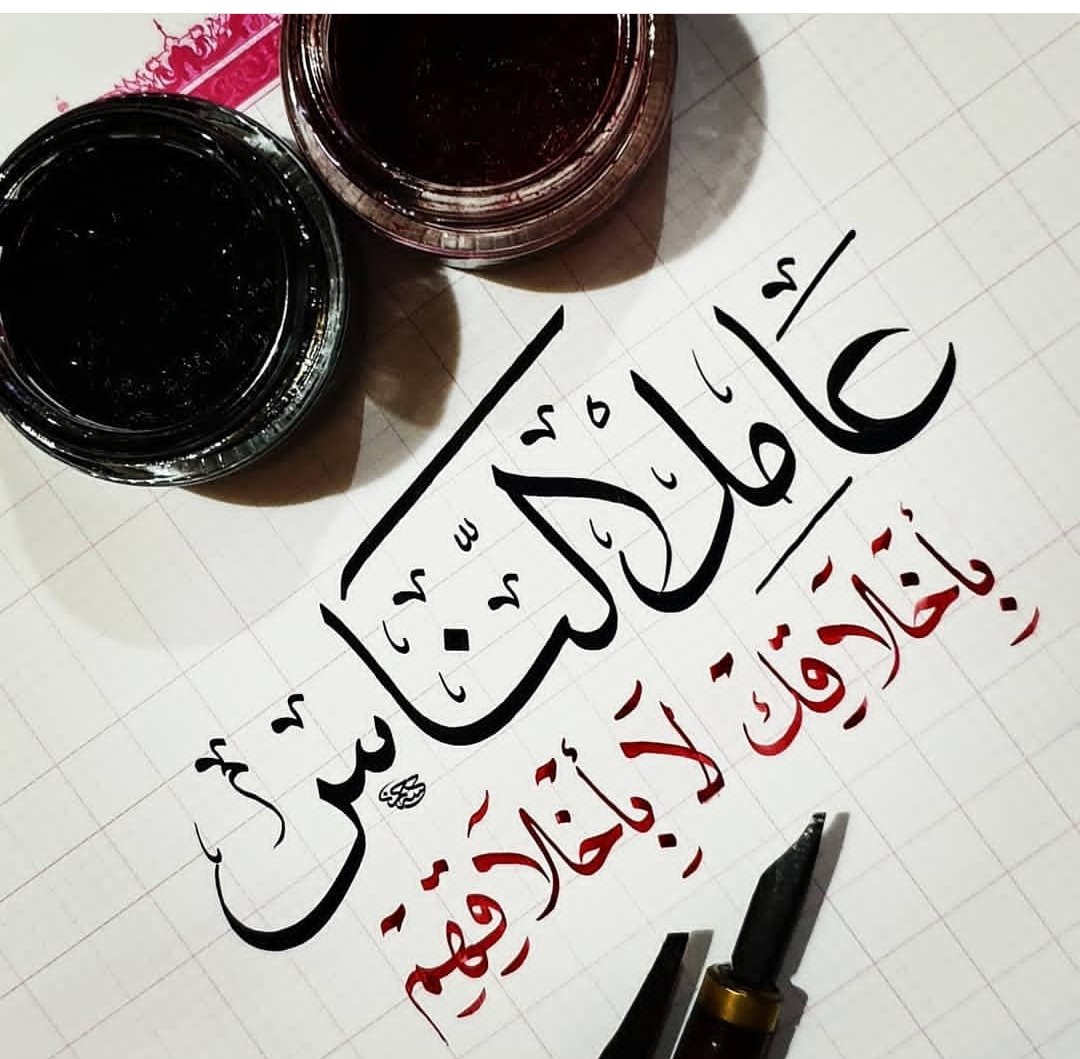 عَامِلِ النَّاسَ
بِأَخْلَاقِكَ لَا بِأَخْلَاقِهِم